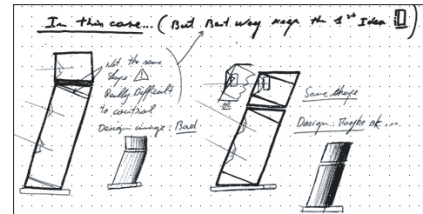 In this case... (But Best way keep the 1st Idea)
Not the same
shape
Really Difficult
to control
Design image: Bad
ok
Same shape
Design: Maybe ok...